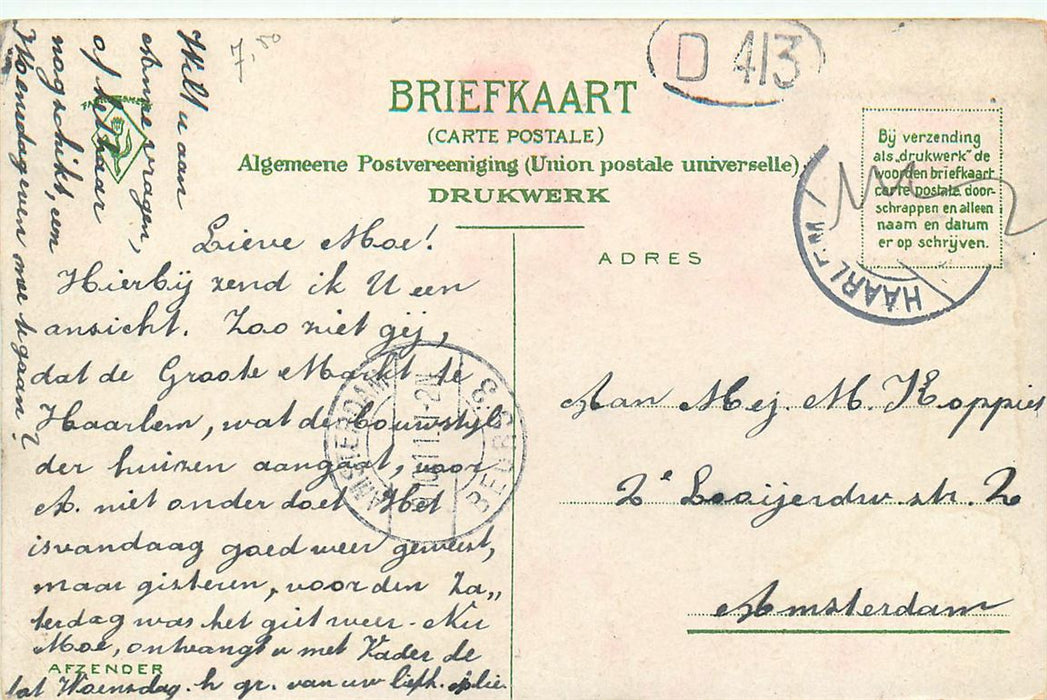 7,50
D 413
BRIEFKAART
(CARTE POSTALE)
Algemeene Postvereeniging (Union postale universelle)
DRUKWERK
Bij verzending
als „drukwerk” de
woorden briefkaart
carte postale door-
schrappen en alleen
naam en datum
er op schrijven.
HAARL
ADRES
Wilt u aan
Anne vragen,
of het haar
nog schikt, een
Woensdageven mee te gaan?
Lieve Moe!
Hierbij zend ik U een
ansicht. Zoo ziet gij,
dat de Groote Markt te
Haarlem, wat de bouwstijl
der huizen aangaat, voor
A. niet onder doet. Het
is vandaag goed weer geweest,
maar gisteren, voor den Za„
terdag was het weer. Nu
Moe, ontvangt u met Vader de
AFZENDER
tot Woensdag. h gr. van uw liefh.
AMSTERDAM
11-2N
BEL
Aan Mej. M. Koppies
2e Looijerdw. str. 2
Amsterdam